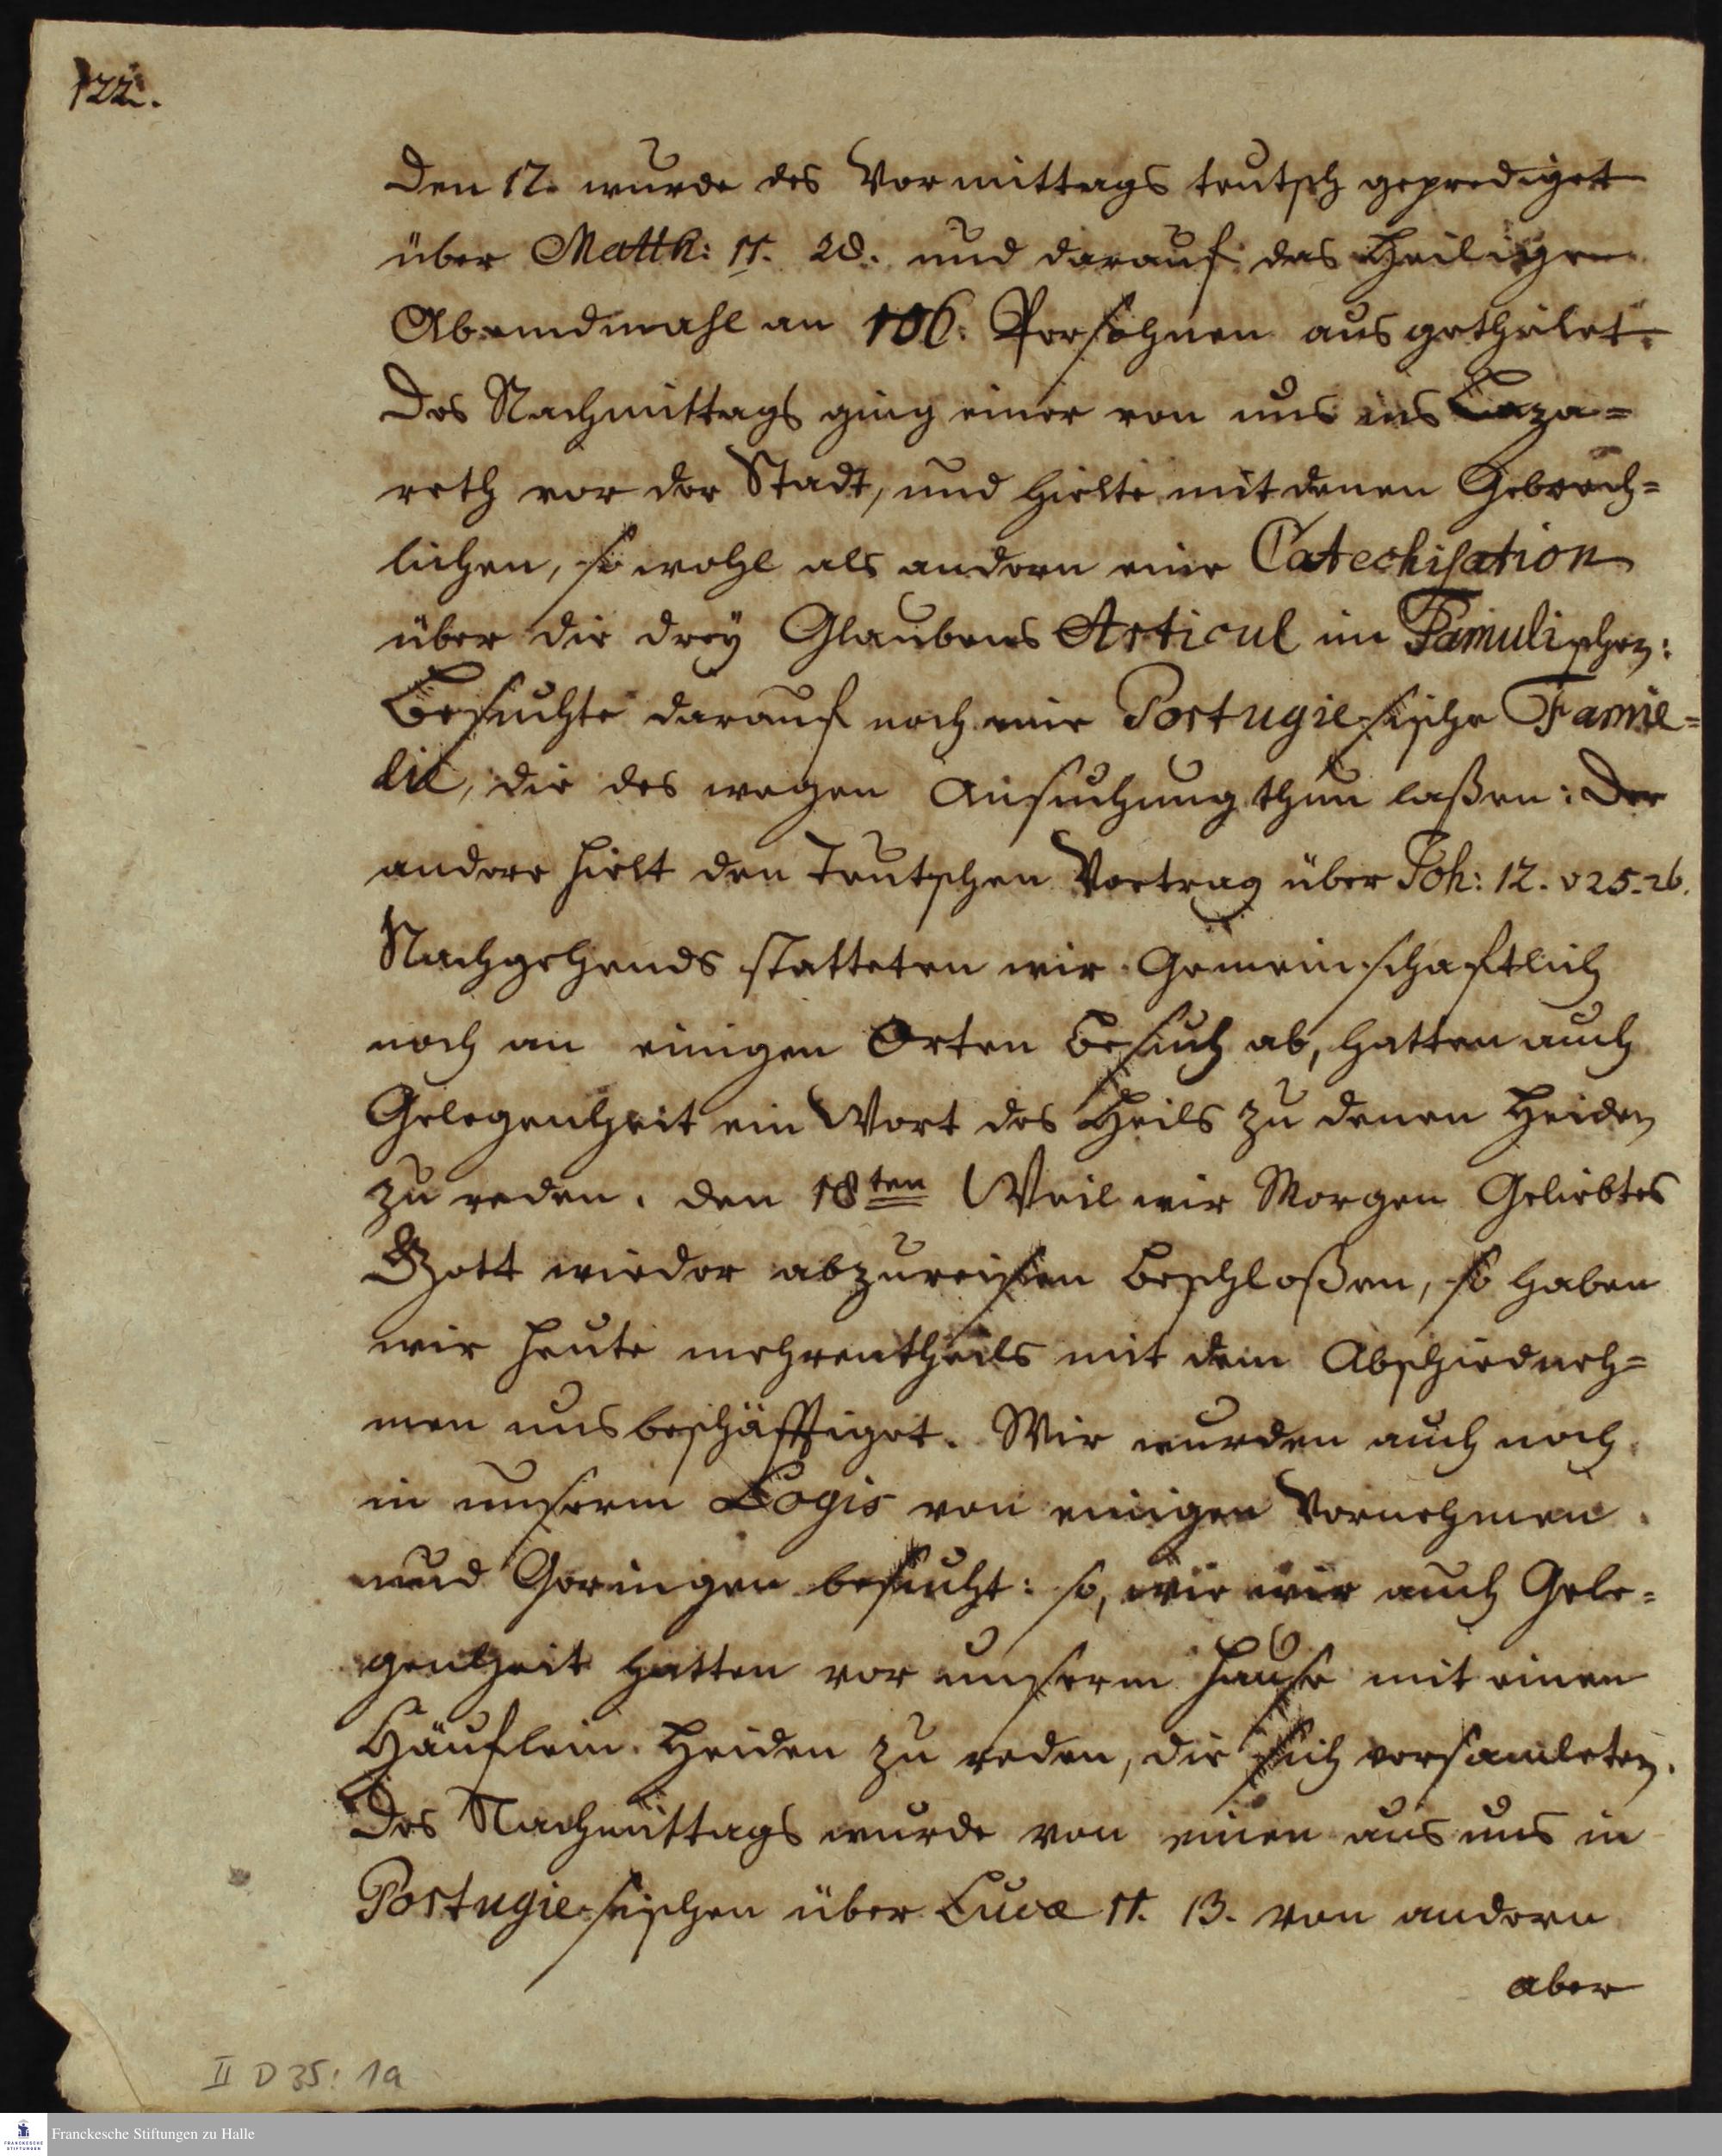 122.
Den 17. wurde des Vormittags teutsch geprediget
über Matth: 11. 28. und darauf das Heiligen
Abendmahl an 106. Persohnen ausgetheilet.
Des Nachmittags ging einer von uns ins Laza=
reth vor der Stadt, und hielte mit denen Gebrech=
lichen, so wohl als andern eine Catechisation
über die drey Glaubens Articul im Tamulischen:
Besuchte darauf noch eine Portugiesische Fami=
lie, die des wegen Ansuchung thun laßen: Der
andere hielt den Teutschen Vortrag über Joh: 12. v 25.26.
Nachgehends statteten wir Gemeinschaftlich
noch an einigen Orten Besuch ab, hatten auch
Gelegenheit ein Wort des Heils zu denen Heiden
zu reden. den 18ten Weil wir Morgen Geliebtes
Gott wieder abzureisen beschloßen, so haben
wir heute mehrentheils mit dem Abschiedneh=
men uns beschäfftiget. Wir wurden auch noch
in unserm Logis von einigen Vornehmen
und Geringen besucht: so, wie wir auch Gele=
genheit hatten vor unserm Hause mit einen
Häuflein Heiden zu reden, die sich versamleten.
Des Nachmittags wurde von einen aus uns in
Portugiesischen über Lucæ 11. 13. von andern
aber
II D 35: 1a
FRANCKESCHE STIFTUNGEN
Franckesche Stiftungen zu Halle